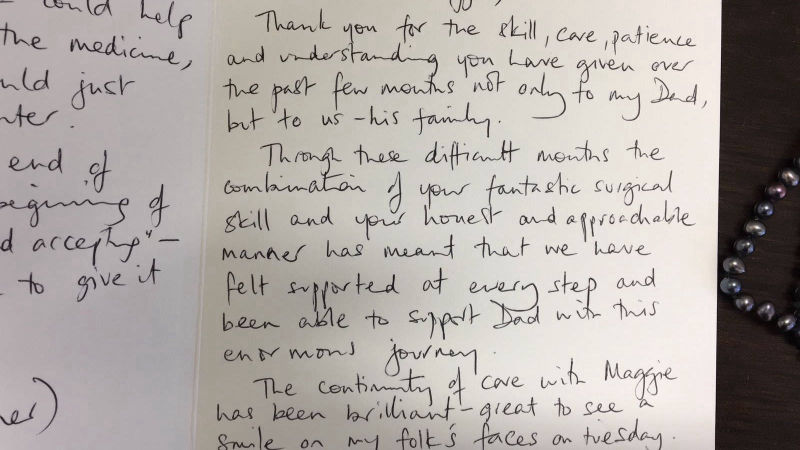 could help
the medicine,
just
end of
of
d accepting" –
to give it
Thank you for the skill, care, patience
and understanding you have given over
the past few months not only to my Dad,
but to us – his family.
Through these difficult months the
combination of your fantastic surgical
skill and your honest and approachable
manner has meant that we have
felt supported at every step and
been able to support Dad with this
enormous journey.
The continuity of care with Maggie
has been brilliant – great to see a
smile on my folk's faces on tuesday.